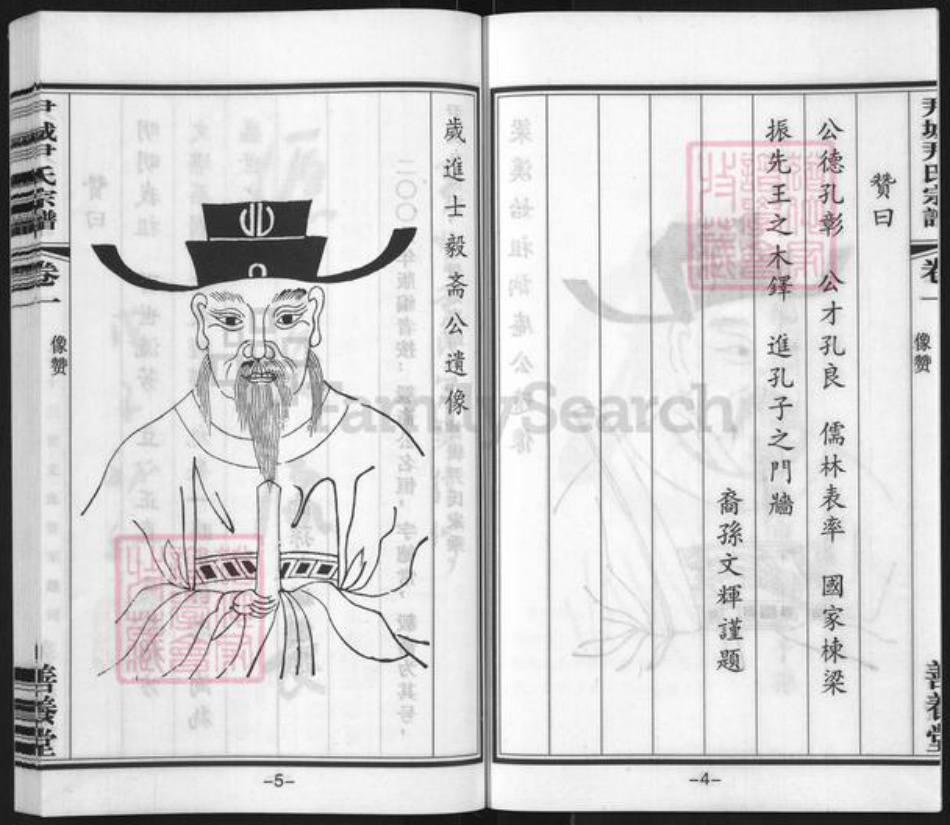 尹城尹氏宗譜
卷一
像赞
善養堂
贊曰
公德孔彰 公才孔良 儒林表率 國家棟梁
振先王之木鐸 進孔子之門牆
裔孫文輝謹題
-4-
歲進士毅斋公遺像
尹城尹氏宗譜
卷一
像赞
善養堂
-5-
FamilySearch